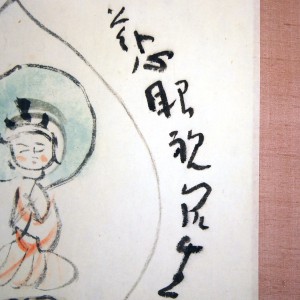 慈眼視衆生